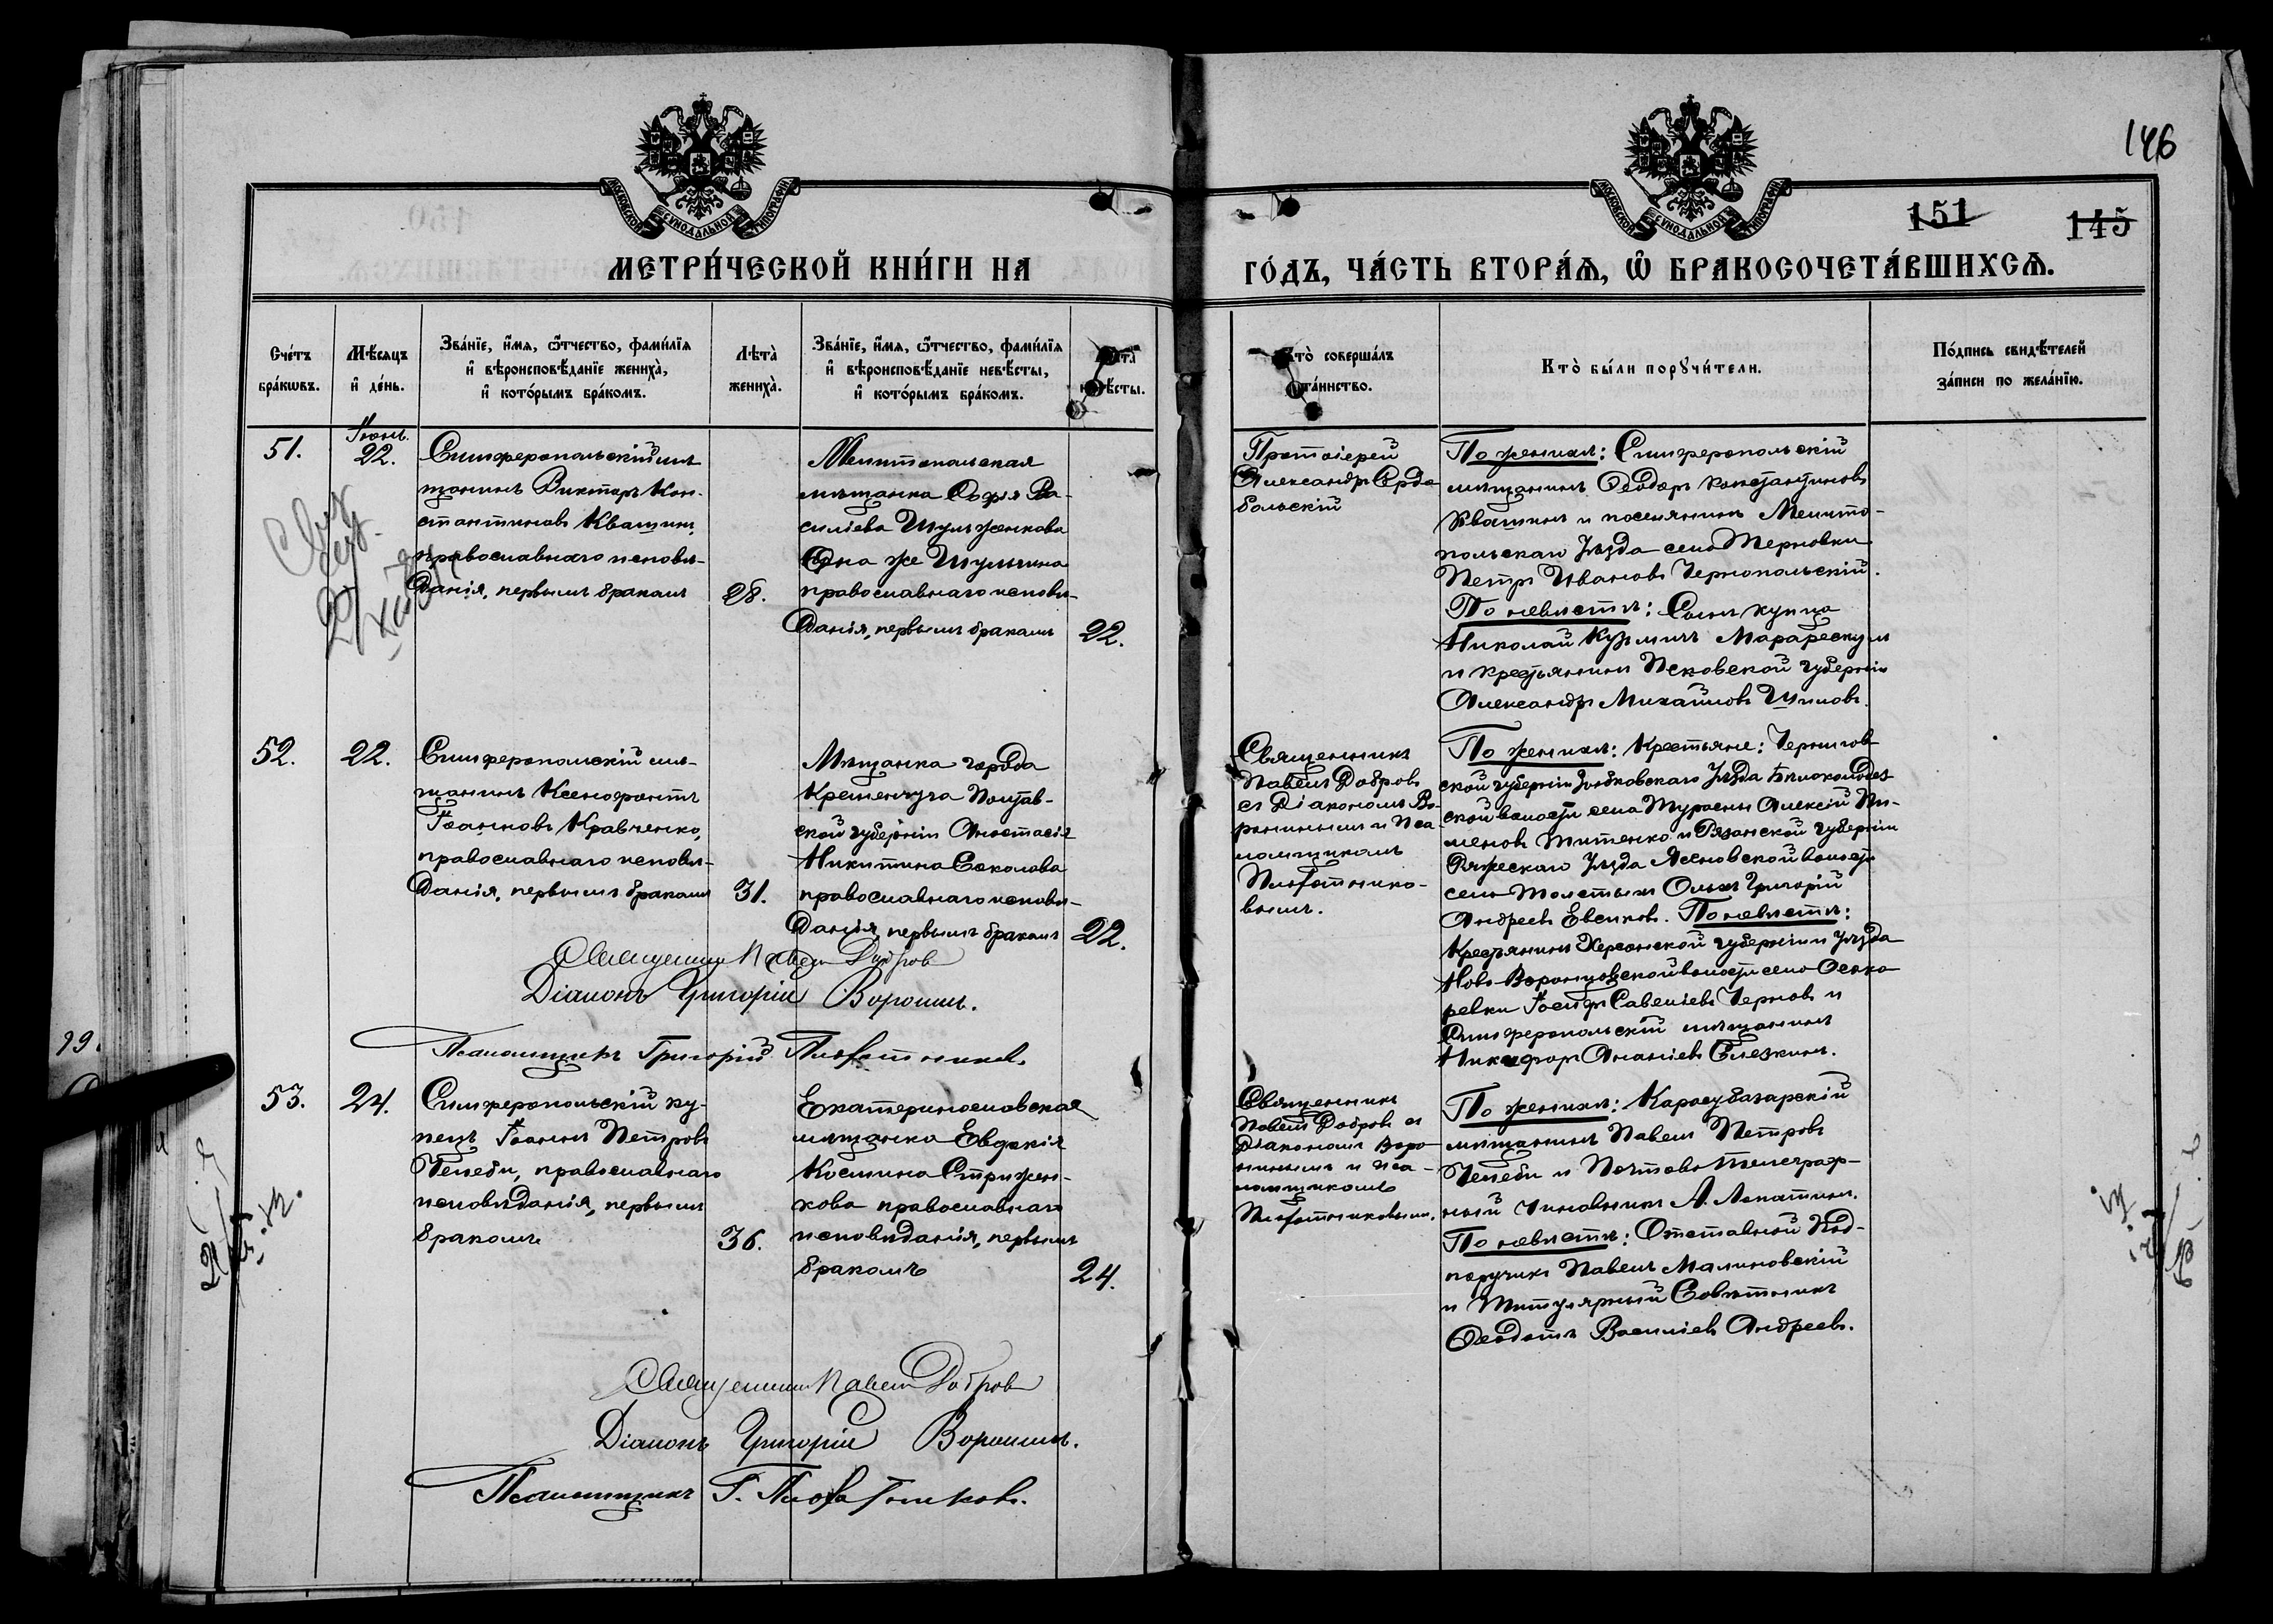 146
151
145
МОСКОВСКОЙ СУНОДАЛЬНОЙ ТИПОГРАФІИ
МОСКОВСКОЙ СУНОДАЛЬНОЙ ТИПОГРАФІИ
МЕТРИ́ЧЕСКОЙ КНИ́ГИ НА
ГО́ДЪ, ЧА́СТЬ ВТОРА́Ѧ, Ѽ БРАКОСОЧЕТА́ВШИХСѦ.
Сче́тъ
бра́кѡвъ.
Мѣ́сяцъ
и҆ де́нь.
Зва́нїе, и҆́мя, ѻ҆́тчество, фами́лїя
и҆ вѣроисповѣ́данїе жениха̀,
и҆ кото́рымъ бра́комъ.
Лѣта̀
жениха̀.
Зва́нїе, и҆́мя, ѻ҆́тчество, фами́лїя
и҆ вѣроисповѣ́данїе невѣ́сты,
и҆ кото́рымъ бра́комъ.
Кто̀ соверша́лъ
таинство.
Кто̀ бы́ли порꙋчи́тели.
По́дпись свидѣ́телей
за́писи по жела́нїю.
51.
Іюнь.
22.
Симферопольскій мѣ-
щанинъ Викторъ Кон-
стантиновъ Квашинъ,
православнаго исповѣ-
данія, первымъ бракомъ
28.
Мелитопольская
мѣщанка Софія Ва-
силіева Шульженкова
Она же Шульгина
православнаго исповѣ-
данія, первымъ бракомъ
22.
Протоіерей
Александръ Серда-
больскій
По женихѣ: Симферопольскій
мѣщанинъ Ѳеодоръ Константиновъ
Квашинъ и поселянинъ Мелито-
польскаго уѣзда села Терновки
Петръ Ивановъ Чернопольскій.
По невѣстѣ: Сынъ купца
Николай Кузьмичъ
и крестьянинъ Псковской губерніи
Александръ Михайловъ Шиловъ.
52.
22.
Симферопольскій мѣ-
щанинъ Ксенофонтъ
Іоанновъ Кравченко,
православнаго исповѣ-
данія, первымъ бракомъ
31.
Мѣщанка города
Кременчуга Полтав-
ской губерніи Анастасія
Никитина Соколова
православнаго исповѣ-
данія, первымъ бракомъ
22.
Священникъ
Павелъ Добровъ
съ Діакономъ Во-
ронинымъ и Пса-
ломщикомъ
Плотнико-
вымъ.
По женихѣ: Крестьяне: Чернигов-
ской губерніи уѣзда
ской волости села Алексій Пи-
меновъ Титенко и Рязанской губерніи
Ряжскаго уѣзда волости
села Толстыхъ Ольхъ Григорій
Андреевъ Евсиковъ. По невѣстѣ:
Крестьянинъ Херсонской губерніи и уѣзда
Ново-Воронцовской волости села Осоко-
ровки Іосифъ Савеліевъ Черновъ и
Симферопольскій мѣщанинъ
Никифоръ Ананіевъ Слезкинъ.
Священникъ Павелъ Добров
Діаконъ Григорій Воронинъ.
Псаломщикъ Григорій Плотниковъ
53.
24.
Симферопольскій ку-
пецъ Іоаннъ Петровъ
Челеби, православнаго
исповѣданія, первымъ
бракомъ
36.
Екатеринославская
мѣщанка Евдокія
Космина Стрижен-
кова православнаго
исповѣданія, первымъ
бракомъ
24.
Священникъ
Павелъ Добровъ съ
Діакономъ Воро-
нинымъ и пса-
ломщикомъ
Плотниковымъ.
По женихѣ: Карасубазарскій
мѣщанинъ Павелъ Петровъ
Челеби и Почтово-Телеграф-
ный чиновникъ А. Лопатинъ.
По невѣстѣ: Отставной Под-
поручикъ Павелъ Малиновскій
и Титулярный Совѣтникъ
Ѳеодотъ Василіевъ Андреевъ.
Священникъ Павелъ Добров
Діаконъ Григорій Воронинъ.
Псаломщикъ Г. Плотниковъ.